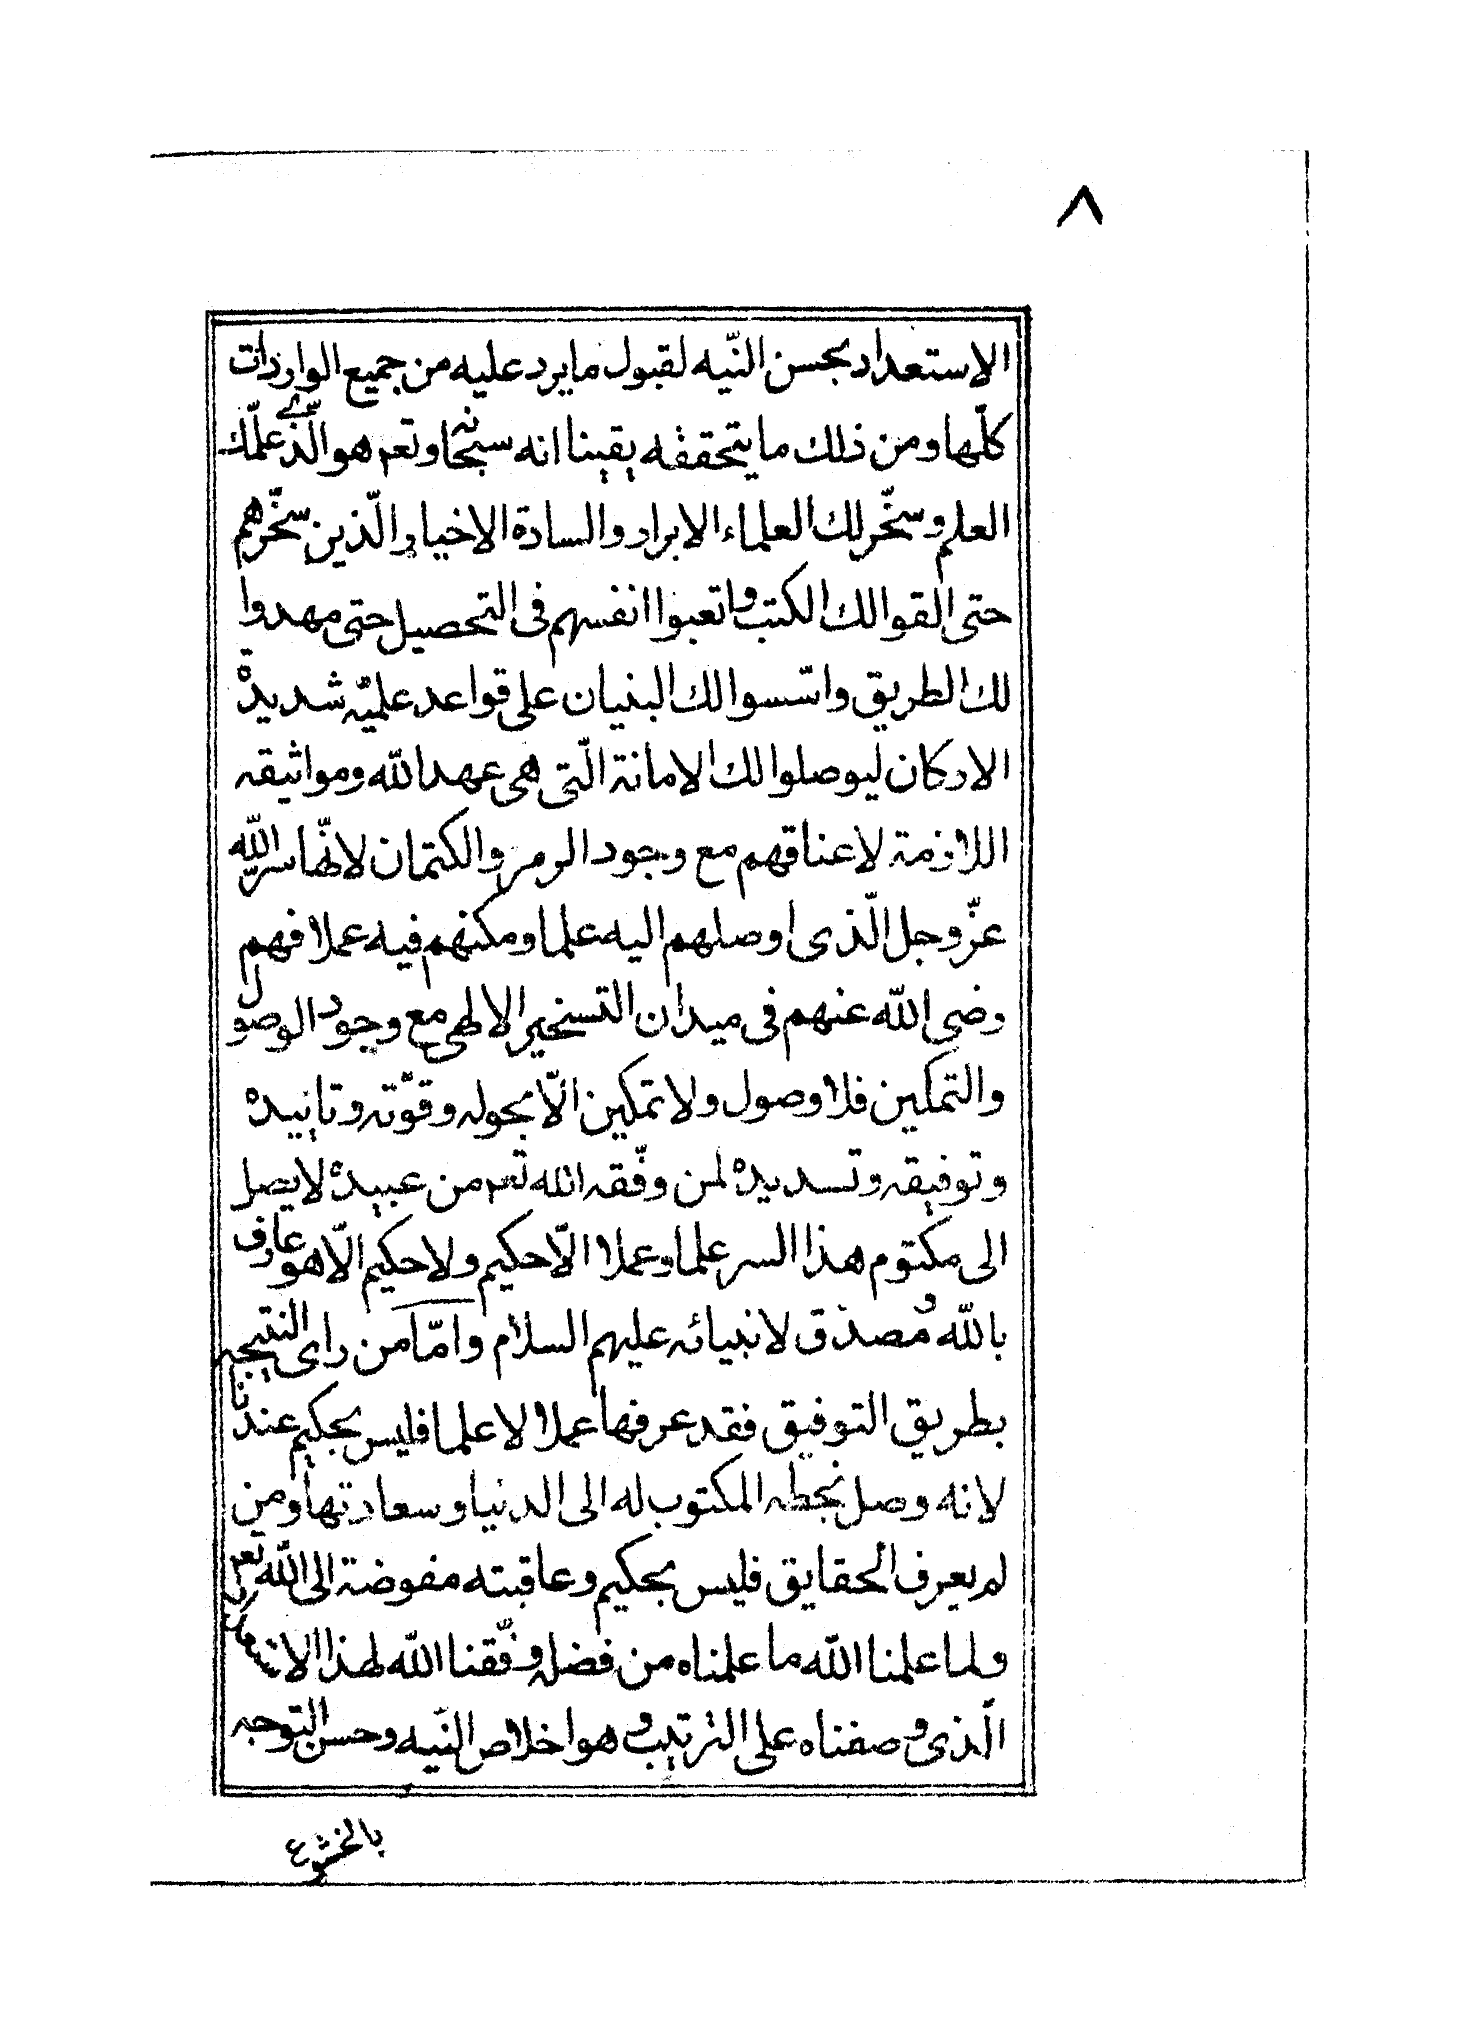 ٨
الاستعداد بحسن النّيه لقبول ما يرد عليه من جميع الواردات
كلّها ومن ذلك ما يتحققه يقينا انه سبحانه وتعم هو الّذى علّمك
العلم وسخّر لك العلماء الابرار والسادة الاخيار الّذين سخّرهم
حتى القوا لك الكتب واتعبوا انفسهم فى التحصيل حتى مهدوا
لك الطريق واسّسوا لك البنيان على قواعد علميّة شديدة
الاركان ليوصلوا لك الامانة الّتى هى عهد الله ومواثيقه
اللازمة لاعناقهم مع وجود الرمز والكتمان لانّها سرّ الله
عزّ وجل الّذى اوصلهم اليه علما ومكنهم فيه عملا فهم
رضى الله عنهم فى ميدان التسخير الالهى مع وجود الوصول
والتمكين فلا وصول ولا تمكين الّا بحوله وقوّته وتاييده
وتوفيقه وتسديده لمن وفّقه الله تعم من عبيده لا يصل
الى مكتوم هذا السر علما وعملا الّا حكيم ولا حكيم الّا هو عارف
بالله ومصدق لانبيائه عليهم السلام وامّا من راى النتيجه
بطريق التوفيق فقد عرفها عملا لا علما فليس بحكيم عندنا
لانه وصل بحظه المكتوب له الى الدنيا وسعادتها ومن
لم يعرف الحقايق فليس بحكيم وعاقبته مفوضة الى الله تعم
ولما علمنا الله ما علمناه من فضله وفّقنا الله لهذا
الّذى وصفناه على الترتيب وهو اخلاص النّيه وحسن التوجه
بالخشوع